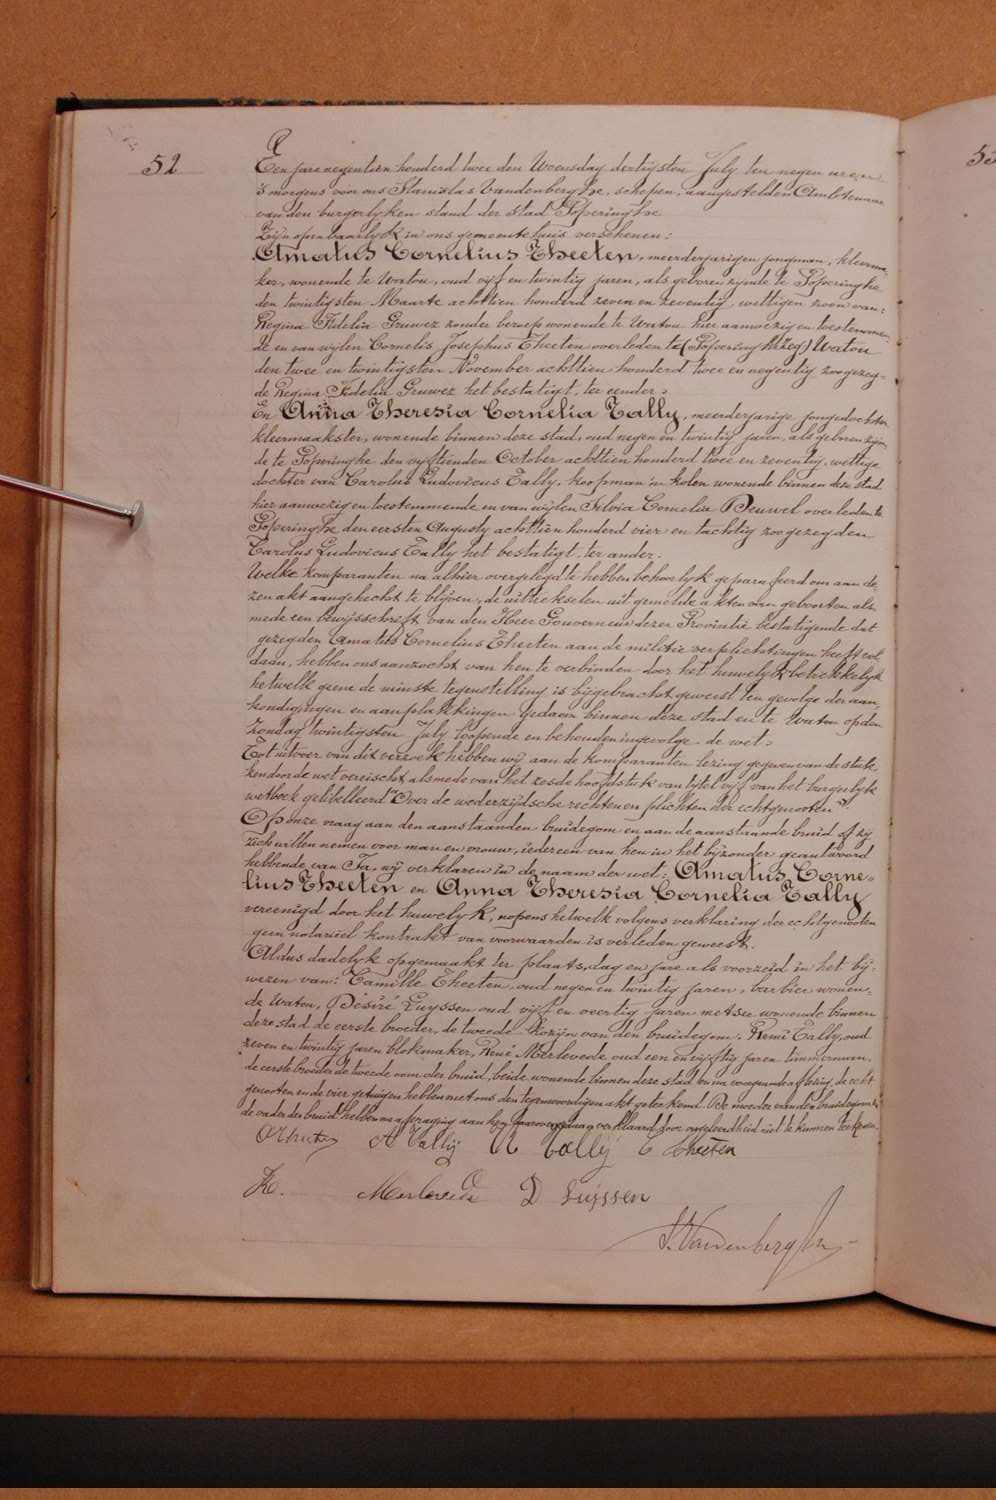 52
53
Een jare negentien honderd twee den Woensdag dertigsten July ten negen uren
's morgens voor ons Stanislas Vandenberghe, schepen, aangestelden Ambtenaar
van den burgerlyken stand der stad Poperinghe
Zijn openbaarlyk in ons gemeentehuis verschenen:
Amatus Cornelius Theeten, meerderjarigen jongman, kleerma-
ker, wonende te Watou, oud vijf en twintig jaren, als geboren zynde te Poperinghe
den twintigsten Maarte achttien honderd zeven en zeventig, wettigen zoon van:
Regina Fidelia Gruwez zonder beroep wonende te Watou hier aanwezig en toestemmen-
de en van wylen Cornelis Josephus Theeten overleden te (Poperinghe zeg) Watou
den twee en twintigsten November achttien honderd twee en negentig zoo gezeg-
de Regina Fidelia Gruwez het bestatigt, ter eender;
En Anna Theresia Cornelia Tally, meerderjarige jongedochter
kleermaakster, wonende binnen deze stad, oud negen en twintig jaren, als geboren zijn-
de te Poperinghe den vijftienden October achttien honderd twee en zeventig, wettige
dochter van Carolus Ludovicus Tally, koopman in kolen wonende binnen deze stad
hier aanwezig en toestemmende en van wijlen Silvia Cornelia Deuwel overleden te
Poperinghe den eersten Augusty achttien honderd vier en tachtig zoo gezegden
Carolus Ludovicus Tally het bestatigt, ter ander.
Welke komparanten na alhier overgelegd te hebben behoorlyk geparafeerd om aan de-
zen akt aangehecht te blijven, de uittrekselen uit gemelde akten van geboorten als-
mede een bewijsschrift van den Heer Gouverneur dezer Provintie bestatigende dat
gezegden Amatus Cornelius Theeten aan de militie verplichtingen heeft vol-
daan, hebben ons aanzocht van hen te verbinden door het huwelyk betrekkelyk
hetwelk geene de minste tegenstelling is bijgebracht geweest ten gevolge der aan-
kondigingen en aanplakkingen gedaan binnen deze stad en te Watou op den
Zondag twintigsten July loopende en behouden ingevolge de wet.
Tot uitvoer van dit verzoek hebben wij aan de komparanten lezing gegeven van de stuk-
ken door de wet vereischt, alsmede van het zesde hoofdstuk van tytel vijf van het burgerlyk
wetboek gelibelleerd "Over de wederzijdsche rechten en plichten der echtgenooten".
Op onze vraag aan den aanstaanden bruidegom en aan de aanstaande bruid of zij
zich willen nemen voor man en vrouw, iedereen van hen in het bijzonder geantwoord
hebbende van Ja, wij verklaren in de naam der wet: Amatus Corne-
lius Theeten en Anna Theresia Cornelia Tally
vereenigd door het huwelyk, nopens hetwelk volgens verklaring der echtgenooten
geen notarieel kontrakt van voorwaarden is verleden geweest.
Aldus dadelyk opgemaakt ter plaats, dag en jare als voorzeid in het bij-
wezen van: Camille Theeten, oud negen en twintig jaren, barbier wonen-
de Watou, Désiré Luyssen oud vijf en veertig jaren metser wonende binnen
deze stad de eerste broeder, de tweede kozijn van den bruidegom; Remi Tally, oud
zeven en twintig jaren blokmaker, René Merlevede oud een en vijftig jaren timmerman,
de eerste broeder de tweede oom der bruid, beide wonende binnen deze stad en na voorgaande aflezing, de echt
genooten en de vier getuigen hebben met ons den tegenwoordigen akt geteekend. De moeder van den bruidegom en
de vader der bruid hebben na afvraging aan hen daarover gedaan verklaard door ongeleerdheid niet te kunnen teekenen.
A Tally R Tally C Theeten
R. Merlevede D Luijssen
S. Vandenberghe